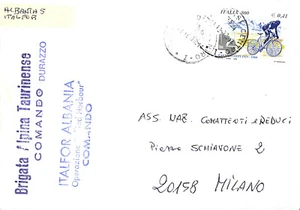 ALBANIA 5
ITALFOR
Brigata Alpina Taurinense
COMANDO DURAZZO
ITALFOR ALBANIA
Operazione
COMANDO
ITALIA 800
€ 0,41
ASS. NAZ. COMBATTENTI e REDUCI
Piazza SCHIAVONE 2
20158 MILANO